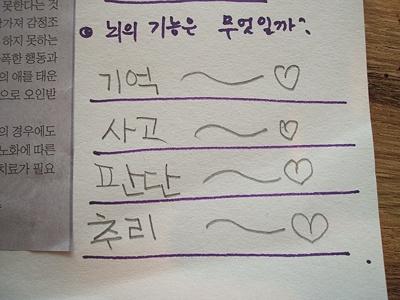 못한다는 것
가져 감정조
하지 못하는
폭한 행동과
의 애를 태운
으로 오인받
의 경우에도
노화에 따른
치료가 필요
뇌의 기능은 무엇일까?
기억
사고
판단
추리